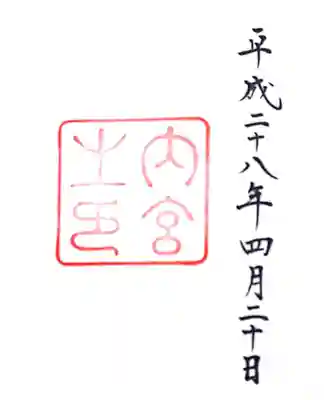 平成二十八年四月二十日
内宮之印